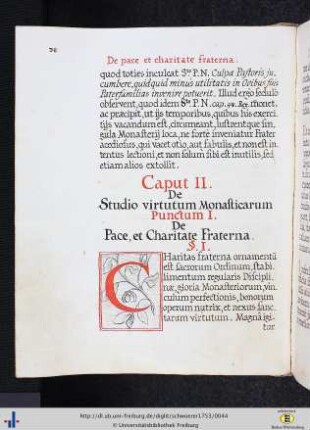 70
De pace et charitate fraterna.
quod toties inculcat Sᵗᵘˢ P.N. Culpa Pastoris in,
cumbere, quidquid minus utilitatis in Ovibus suis
Paterfamilias invenire potuerit. Illud ergo sedulo
observent, quod idem Sᵗᵘˢ P.N. cap. 48. Reg. monet,
ac præcipit, ut ijs temporibus, quibus his exerci,
tijs vacandum est, circumeant, lustrentque sin,
gula Monasterij loca, ne forte inveniatur Frater
acediosus, qui vacet otio, aut fabulis, et non est in
tentus lectioni, et non solum sibi est inutilis, sed
etiam alios extollit.
Caput II.
De
Studio virtutum Monasticarum
Punctum I.
De
Pace, et Charitate Fraterna.
§. I.
CHaritas fraterna ornamentū
est sacrorum Ordinum, stabi,
limentum regularis Discipli,
næ, gloria Monasteriorum, vin,
culum perfectionis, bonorum
operum nutrix, et nexus sanc,
tarum virtutum. Magna igi,
tur
http://dl.ub.uni-freiburg.de/diglit/schwoerer1753/0044
© Universitätsbibliothek Freiburg